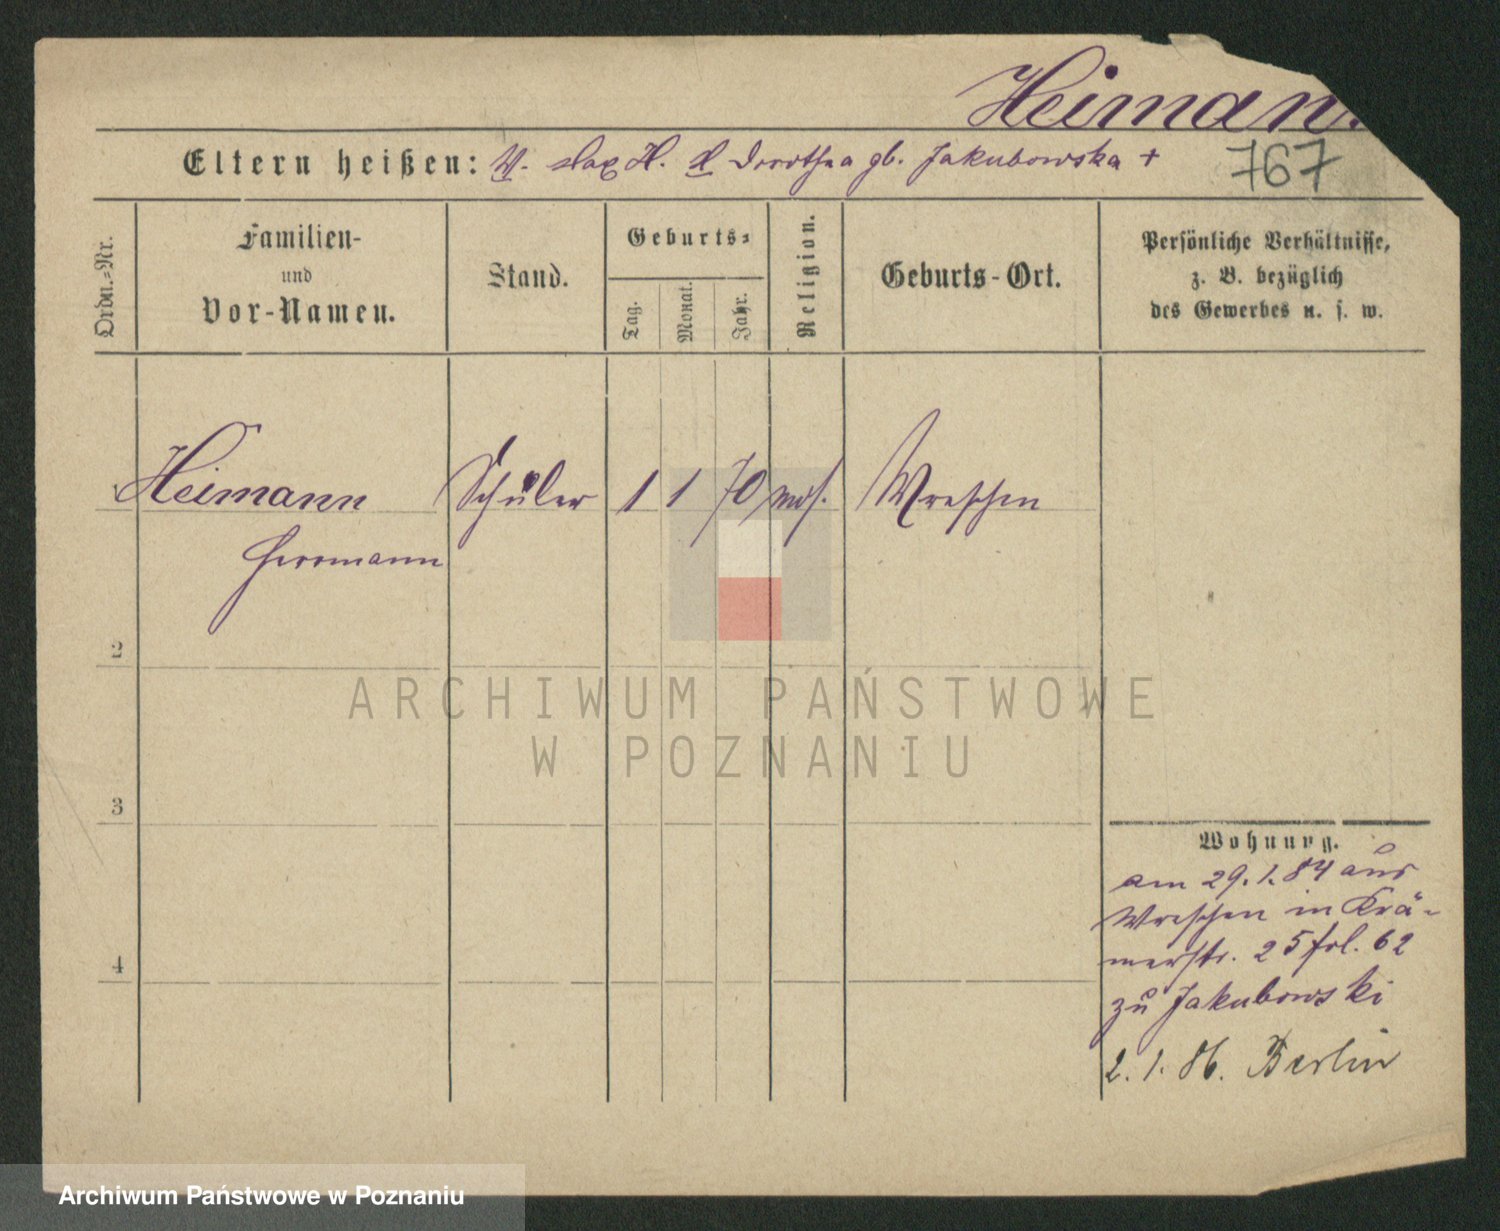 Heiman.
Eltern heißen: H. d Dorothea gb. Jakubowska +
767
Ordn.-Nr.
Familien-
und
Vor-Namen.
Stand.
Geburts-
Tag.
Monat.
Jahr.
Religion.
Geburts-Ort.
Persönliche Verhältnisse,
z. B. bezüglich
des Gewerbes u. s. w.
Heimann Schüler 1 1 70 mos. Wreschen
Herrmann
2
3
4
Wohnung.
am 29.1.84 aus
Wreschen in Krä-
merstr. 25 fol. 62
zu Jakubowski
2.1.86. Berlin
ARCHIWUM PAŃSTWOWE
W POZNANIU
Archiwum Państwowe w Poznaniu